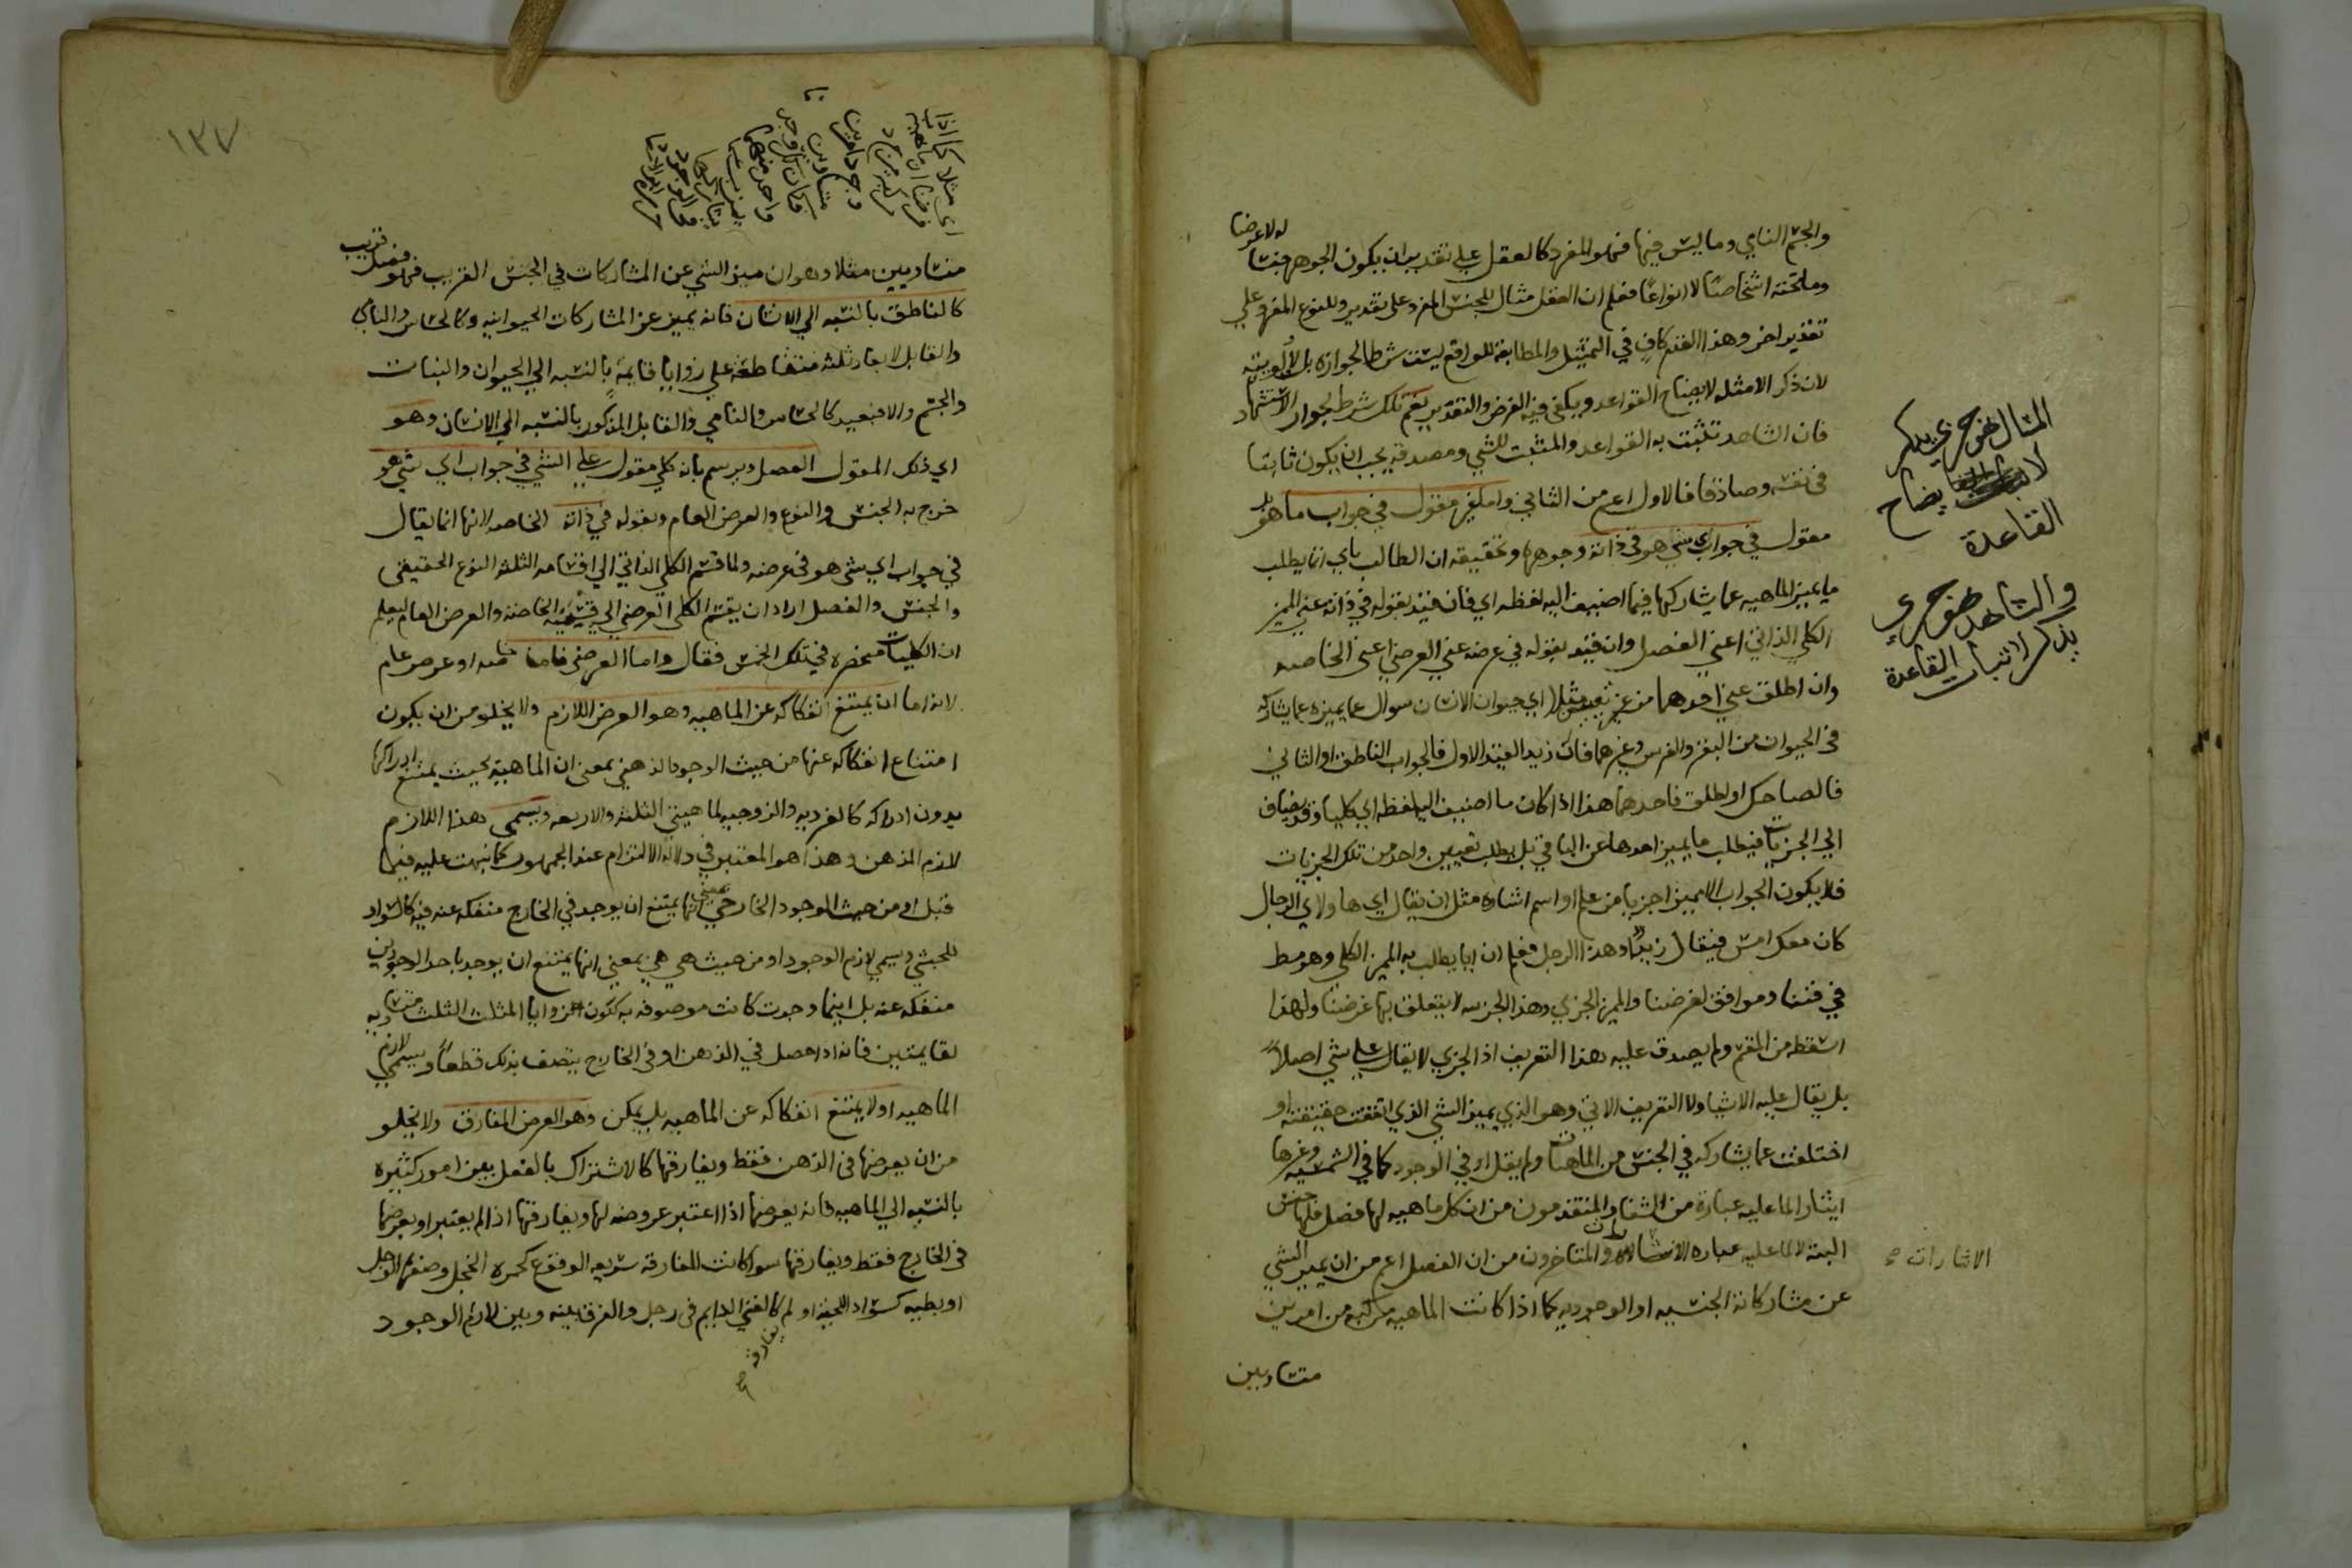 والجسم النامي وما ليس فيها فهو المفرد كالعقل علي تقدير ان يكون الجوهر جنسا له لا عرضا
وما تحته اشخاصا لا انواعا فعلم ان العقل مثال للجنس المفرد علي تقدير وللنوع المفرد علي
تقدير اخر وهذا القدر كاف في التمثيل والمطابقة للواقع ليست شرطا لجوازه بل لألويته
لان ذكر الامثله لايضاح القواعد ويكفي فيه الفرض والتقدير نعم تلك شرط لجواز الاستشهاد
فان الشاهد تثبت به القواعد والمثبت للشي ومصدقه يجب ان يكون ثابتا
في نفسه وصادقا فالاول اعم من الثاني واما غير مقول في جواب ما هو بل
مقول في جواب اي شي هو في ذاته وجوهره وتحقيقه ان الطالب باي انما يطلب
ما يميز الماهيه عما يشاركها فيما اضيف اليه لفظه اي فان قيد بقوله في ذاته عني المميز
الكلي الذاتي اعني الفصل وان قيد بقوله في عرضه عني العرضي اعني الخاصه
وان اطلق عني احدهما من غير تعيين مثلا اي حيوان الانسان سوال عما يميزه عما يشاركه
في الحيوان من البقر والفرس وغيرهما فان زيد القيد الاول فالجواب الناطق او الثاني
فالضاحك او اطلق فاحدهما هذا اذا كان ما اضيف اليه لفظه اي كليا وقد يضاف
الي الجزيات فيطلب ما يميز احدها عن الباقي بل يطلب تعيين واحد من تلك الجزيات
فلا يكون الجواب الا مميزا جزيا من علم او اسم اشاره مثل ان يقال اي هاولاي الرجال
كان معك امس فيقال زيد او هذا الرجل فعلم ان ايا يطلب به المميز الكلي وهو مسط
في فننا وموافق لغرضنا والمميز الجزي وهذا الجزي لا يتعلق بها غرضنا ولهذا
اسقط من القسم ولم يصدق عليه هذا التعريف اذ الجزي لا يقال علي شي اصلا
بل يقال عليه الاشيا ولا التعريف الاتي وهو الذي يميز الشي الذي اتفقت حقيقته او
اختلفت عما يشاركه في الجنس من الماهيات ولم يقل او في الوجود كما في الشمسيه وغيرها
ايثارا لما عليه عبارة من الشفا والمتقدمون من ان كل ماهيه لها فصل فلها جنس
البته لا لما عليه عباره الاشارات والمتاخرون من ان الفصل اعم من ان يميز الشي
عن مشاركاته الجنسيه او الوجوديه كما اذا كانت الماهيه مركبه من امرين
متساويين
المثال هو جزي يذكر
لايضاح
القاعدة
والشاهد هو جزي
يذكر لاثبات القاعدة
الاشارات
١٣٧
متساويين مثلا وهو ان ميز الشي عن المشاركات في الجنس القريب فهو فصل قريب
كالناطق بالنسبه الي الانسان فانه يميز عن المشاركات الحيوانيه وكالحساس والنامي
والقابل لابعاد ثلثه متقاطعة علي زوايا قايمة بالنسبه الي الحيوان والنبات
والجسم والا فبعيد كالحساس والنامي والقابل المذكور بالنسبه الي الانسان وهو
اي ذلك المقول الفصل ويرسم بانه كلي مقول علي الشي في جواب اي شي هو
خرج به الجنس والنوع والعرض العام وبقوله في ذاته الخاصه لانها انما يقال
في جواب اي شي هو في عرضه ولما قسم الكلي الذاتي الي اقسامه الثلثه النوع الحقيقي
والجنس والفصل اراد ان يقسم الكلي العرضي الي قسميه الخاصه والعرض العام ليعلم
ان الكليات منحصره في تلك الخمس فقال واما العرضي فاما خاصه او عرض عام
لانه اما ان يمتنع انفكاكه عن الماهيه وهو العرض اللازم ولا يخلو من ان يكون
امتناع انفكاكه عنها من حيث الوجود الذهني بمعني ان الماهية بحيث يمتنع ادراكها
بدون ادراكه كالفرديه والزوجيه لماهيتي الثلثه والاربعه ويسمي هذا اللازم
لازم الذهن وهذا هو المعتبر في دلالة الالتزام عند الجمهور كما نبهت عليه فيما
قبل او من حيث الوجود الخارجي بمعني انها يمتنع ان يوجد في الخارج منفكه عنه فيه كالسواد
للحبشي ويسمي لازم الوجود او من حيث هي هي بمعني انها يمتنع ان يوجد باحد الوجودين
منفكه عنه بل اينما وجدت كانت موصوفه به ككون الزوايا المثلث الثلث متساويه
لقايمتين فانه اذا حصل في الذهن او في الخارج يتصف بذلك قطعا ويسمي لازم
الماهيه او لا يمتنع انفكاكه عن الماهيه بل يمكن وهو العرض المفارق ولا يخلو
من ان يعرضها في الذهن فقط ويفارقها كالاشتراك بالفعل بين امور كثيره
بالنسبه الي الماهيه فانه يعرضها اذا اعتبر عروضه لها ويفارقها اذا لم يعتبر او يعرضها
في الخارج فقط ويفارقها سوا كانت المفارقه سريعه الوقوع كحمره الخجل وصفره الوجل
او بطيه كسواد اللحيه او لم يفارقه كالفقر الدايم في رجل والفرق بينه وبين لازم الوجود